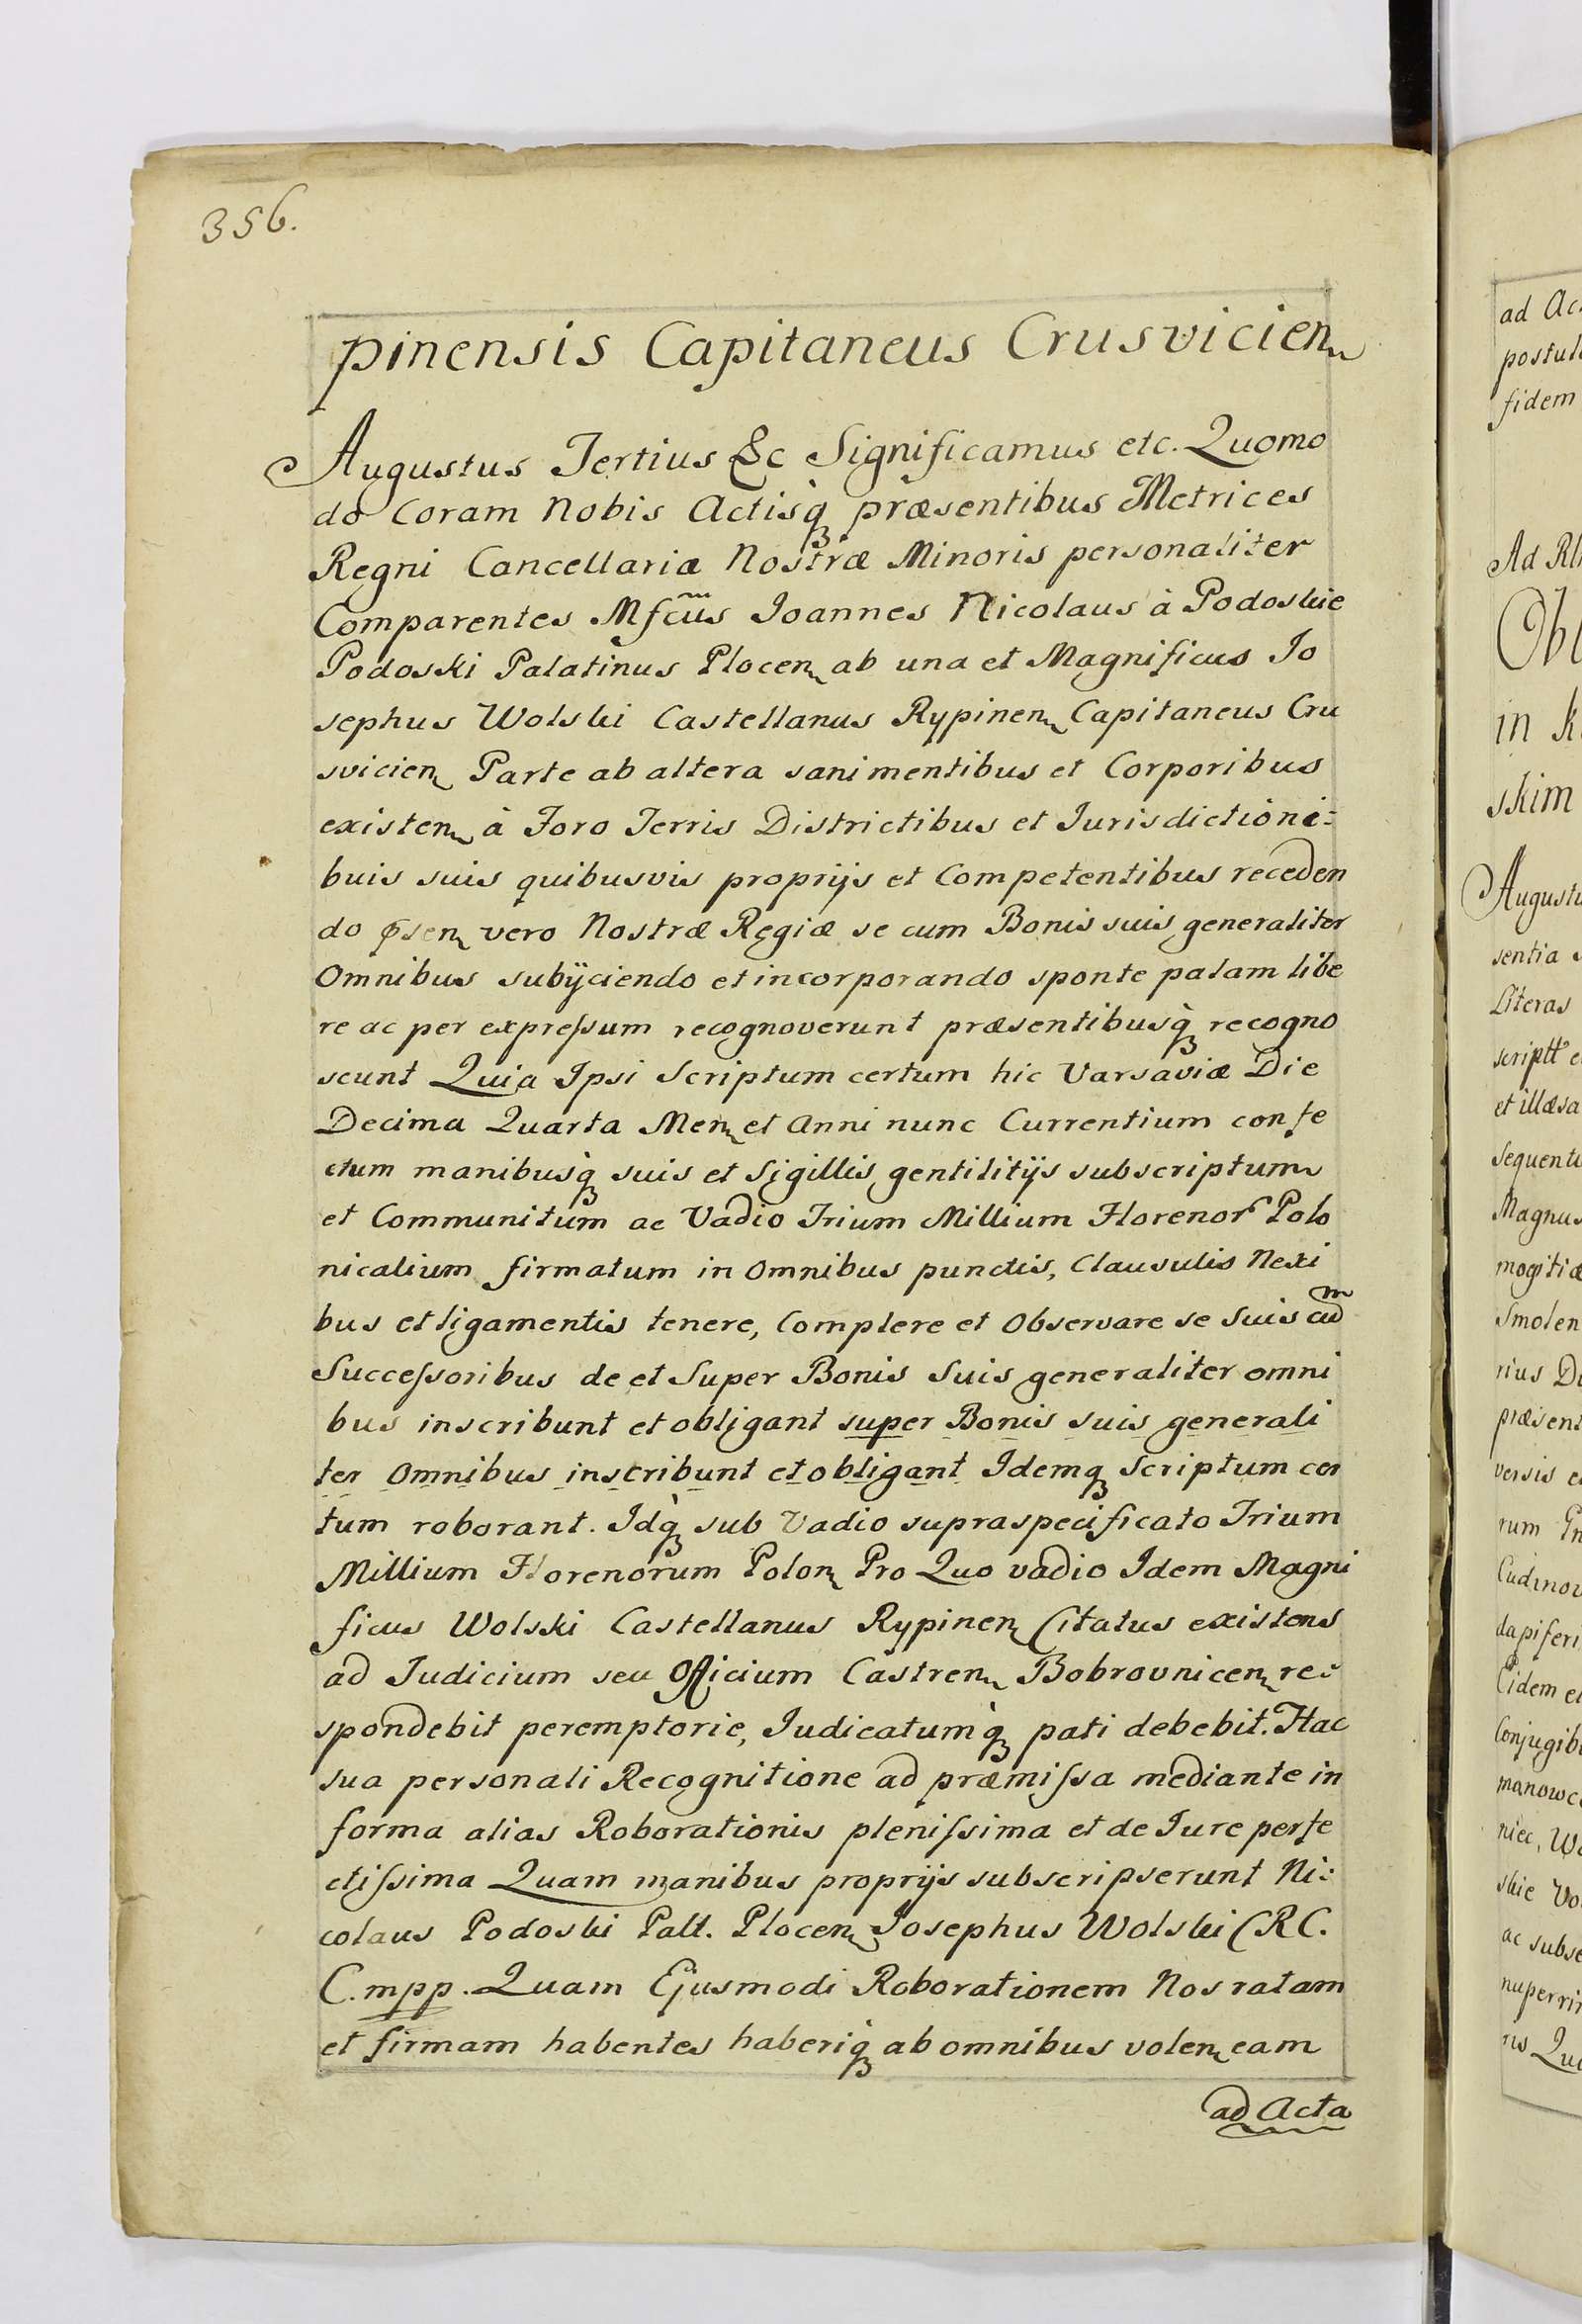 356.
pinensis Capitaneus Crusvicien
Augustus Tertius &c Significamus etc. Quomo
do Coram Nobis Actisq̀ præsentibus Metrices
Regni Cancellariæ Nostræ Minoris personaliter
Comparentes Mfcus Ioannes Nicolaus à Podoskie
Podoski Palatinus Plocen ab una et Magnificus Jo
sephus Wolski Castellanus Rypinen Capitaneus Cru
svicien Parte ab altera sani mentibus et Corporibus
existen à Foro Terris Districtibus et Iurisdictioni:
buis suis quibusvis proprijs et Competentibus receden
do psen vero Nostræ Regiæ se cum Bonis suis generaliter
Omnibus subijciendo et incorporando sponte palam libe
re ac per expreſsum recognoverunt præsentibusq̀ recogno
scunt Quia Ipsi Scriptum certum hic Varsaviæ Die
Decima Quarta Men et Anni nunc Currentium confe
ctum manibusq̀ suis et Sigillis gentilitijs subscriptum
et Communitum ac Vadio Trium Millium Florenor Polo
nicalium firmatum in Omnibus punctis, Clausulis Nexi
bus et ligamentis tenere, Complere et Observare se Suis cum
Succeſsoribus de et Super Bonis Suis generaliter omni
bus inscribunt et obligant super Bonis suis generali
ter Omnibus inscribunt et obligant Idemq Scriptum cer
tum roborant. Idq̀ sub Vadio supraspecificato Trium
Millium Florenorum Polon Pro Quo vadio Idem Magni
ficus Wolski Castellanus Rypinen Citatus existens
ad Judicium seu Officium Castren Bobrovnicen re:
spondebit peremptorie, Iudicatumq̀ pati debebit. Hac
sua personali Recognitione ad præmiſsa mediante in
forma alias Roborationis pleniſsima et de Iure perfe
ctiſsima Quam manibus proprijs subscripserunt Ni:
colaus Podoski Palt. Plocen Josephus Wolski C R C.
C. mpp. Quam Ejusmodi Roborationem Nos ratam
et firmam habentes haberiq̀ ab omnibus volen eam
ad Acta
ad Ac
postul
fidem
Ad Rl
Obl
in k
skim
Augustu
sentia
Literas
scriptt
et illæsa
sequenti
Magnus
mogitiæ
Smolen
rius
præsent
versis
rum
Cudinov
dapiferi
Eidem
Conjugib
manowc
niec,
skie
ac subsc
nuperri